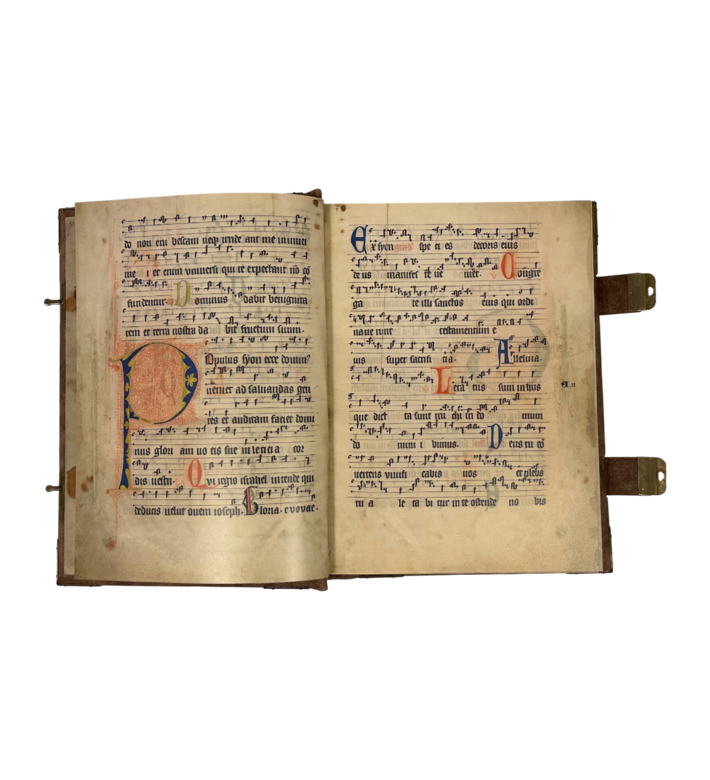 do non eni
me i et enim universi qui te expectant nō cō
fundentur Dominus dabit benignita
tem et terra nostra da bit fructum suum.
Populus syon ecce domin⁹
veniet ad salvandas gen
tes et auditam faciet domi
nus glori am vo cis sue in leticia cor
dis vestri. Qui regis israhel intende qui
deducis velut ovem ioseph. Gloria. evovae.
Ex syon grad spe ci es decoris eius
de us manifes te ve niet. v Congre
ga te illi sanctos eius qui ordi
naverunt testamentum e
ius super sacrifi cia. Alleluia.
Leta tus sum in hiis
que dicta sunt mi chi in do mum
do mi ni i bimus. Deus tu cō
vertens vivifi cabis nos et plebs
tu a le ta bi tur in te ostende no bis